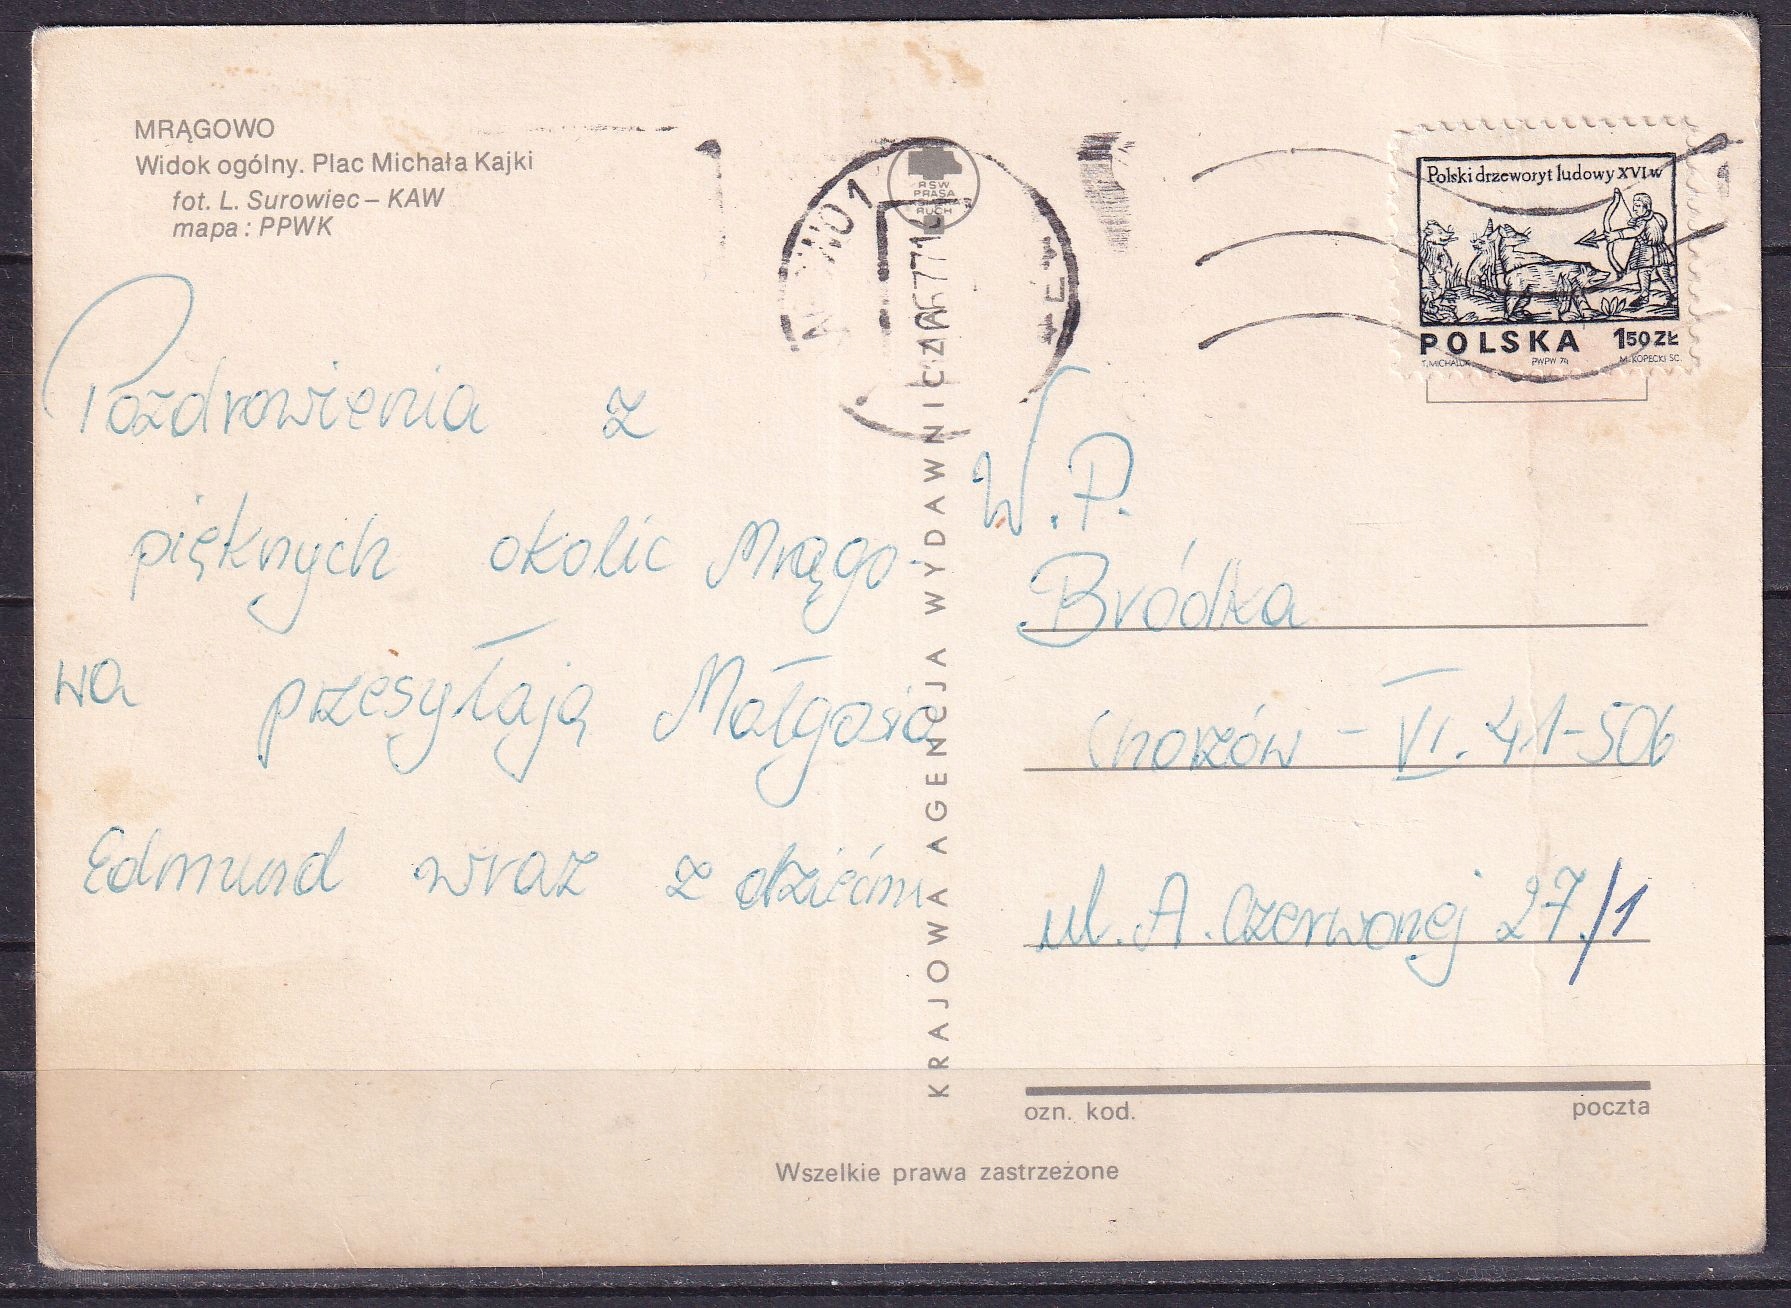 MRĄGOWO
Widok ogólny. Plac Michała Kajki
fot. L. Surowiec – KAW
mapa : PPWK
Pozdrowienia z
pięknych okolic Mrągo-
wa przesyłają Małgosia
Edmund wraz z dziećmi
KRAJOWA AGENCJA WYDAWNICZA
RSW
PRASA
RUCH
WO 1
77
Polski drzeworyt ludowy XVI w
POLSKA 150 ZŁ
T. MICHALUK PWPW 74 M. KOPECKI SC.
W. P.
Bródka
Chorzów – VI. 41-506
ul. A. Czerwonej 27/1
ozn. kod. poczta
Wszelkie prawa zastrzeżone